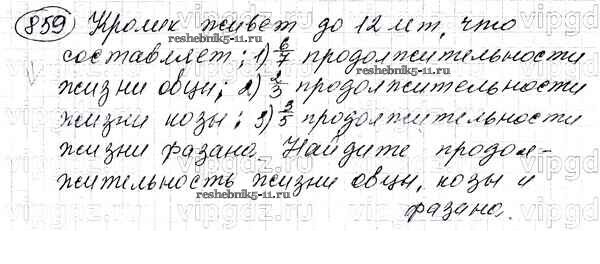 859) Кролик живет до 12 лет, что
составляет: 1) 6/7 продолжительности
жизни овцы; 2) 2/3 продолжительности
жизни козы; 3) 3/5 продолжительности
жизни фазана. Найдите продол-
жительность жизни овцы, козы и
фазана.
reshebnik5-11.ru
reshebnik5-11.ru
reshebnik5-11.ru
vipgdz